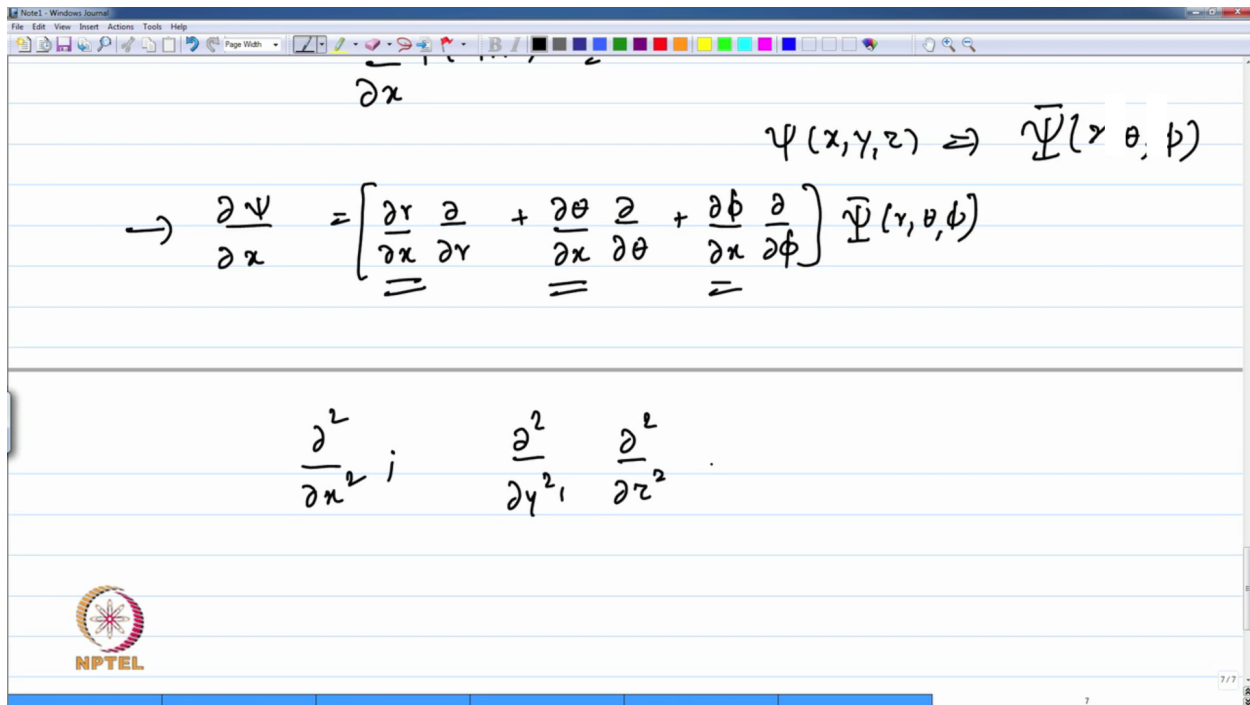 Note1 - Windows Journal
File Edit View Insert Actions Tools Help
Page Width
B I
∂x
ψ(x,y,z) ⇒ Ψ̄(r θ, ϕ)
→ ∂Ψ/∂x = [∂r/∂x ∂/∂r + ∂θ/∂x ∂/∂θ + ∂ϕ/∂x ∂/∂ϕ] Ψ̄(r,θ,ϕ)
∂²/∂x² ; ∂²/∂y², ∂²/∂z² .
NPTEL
7/7
7